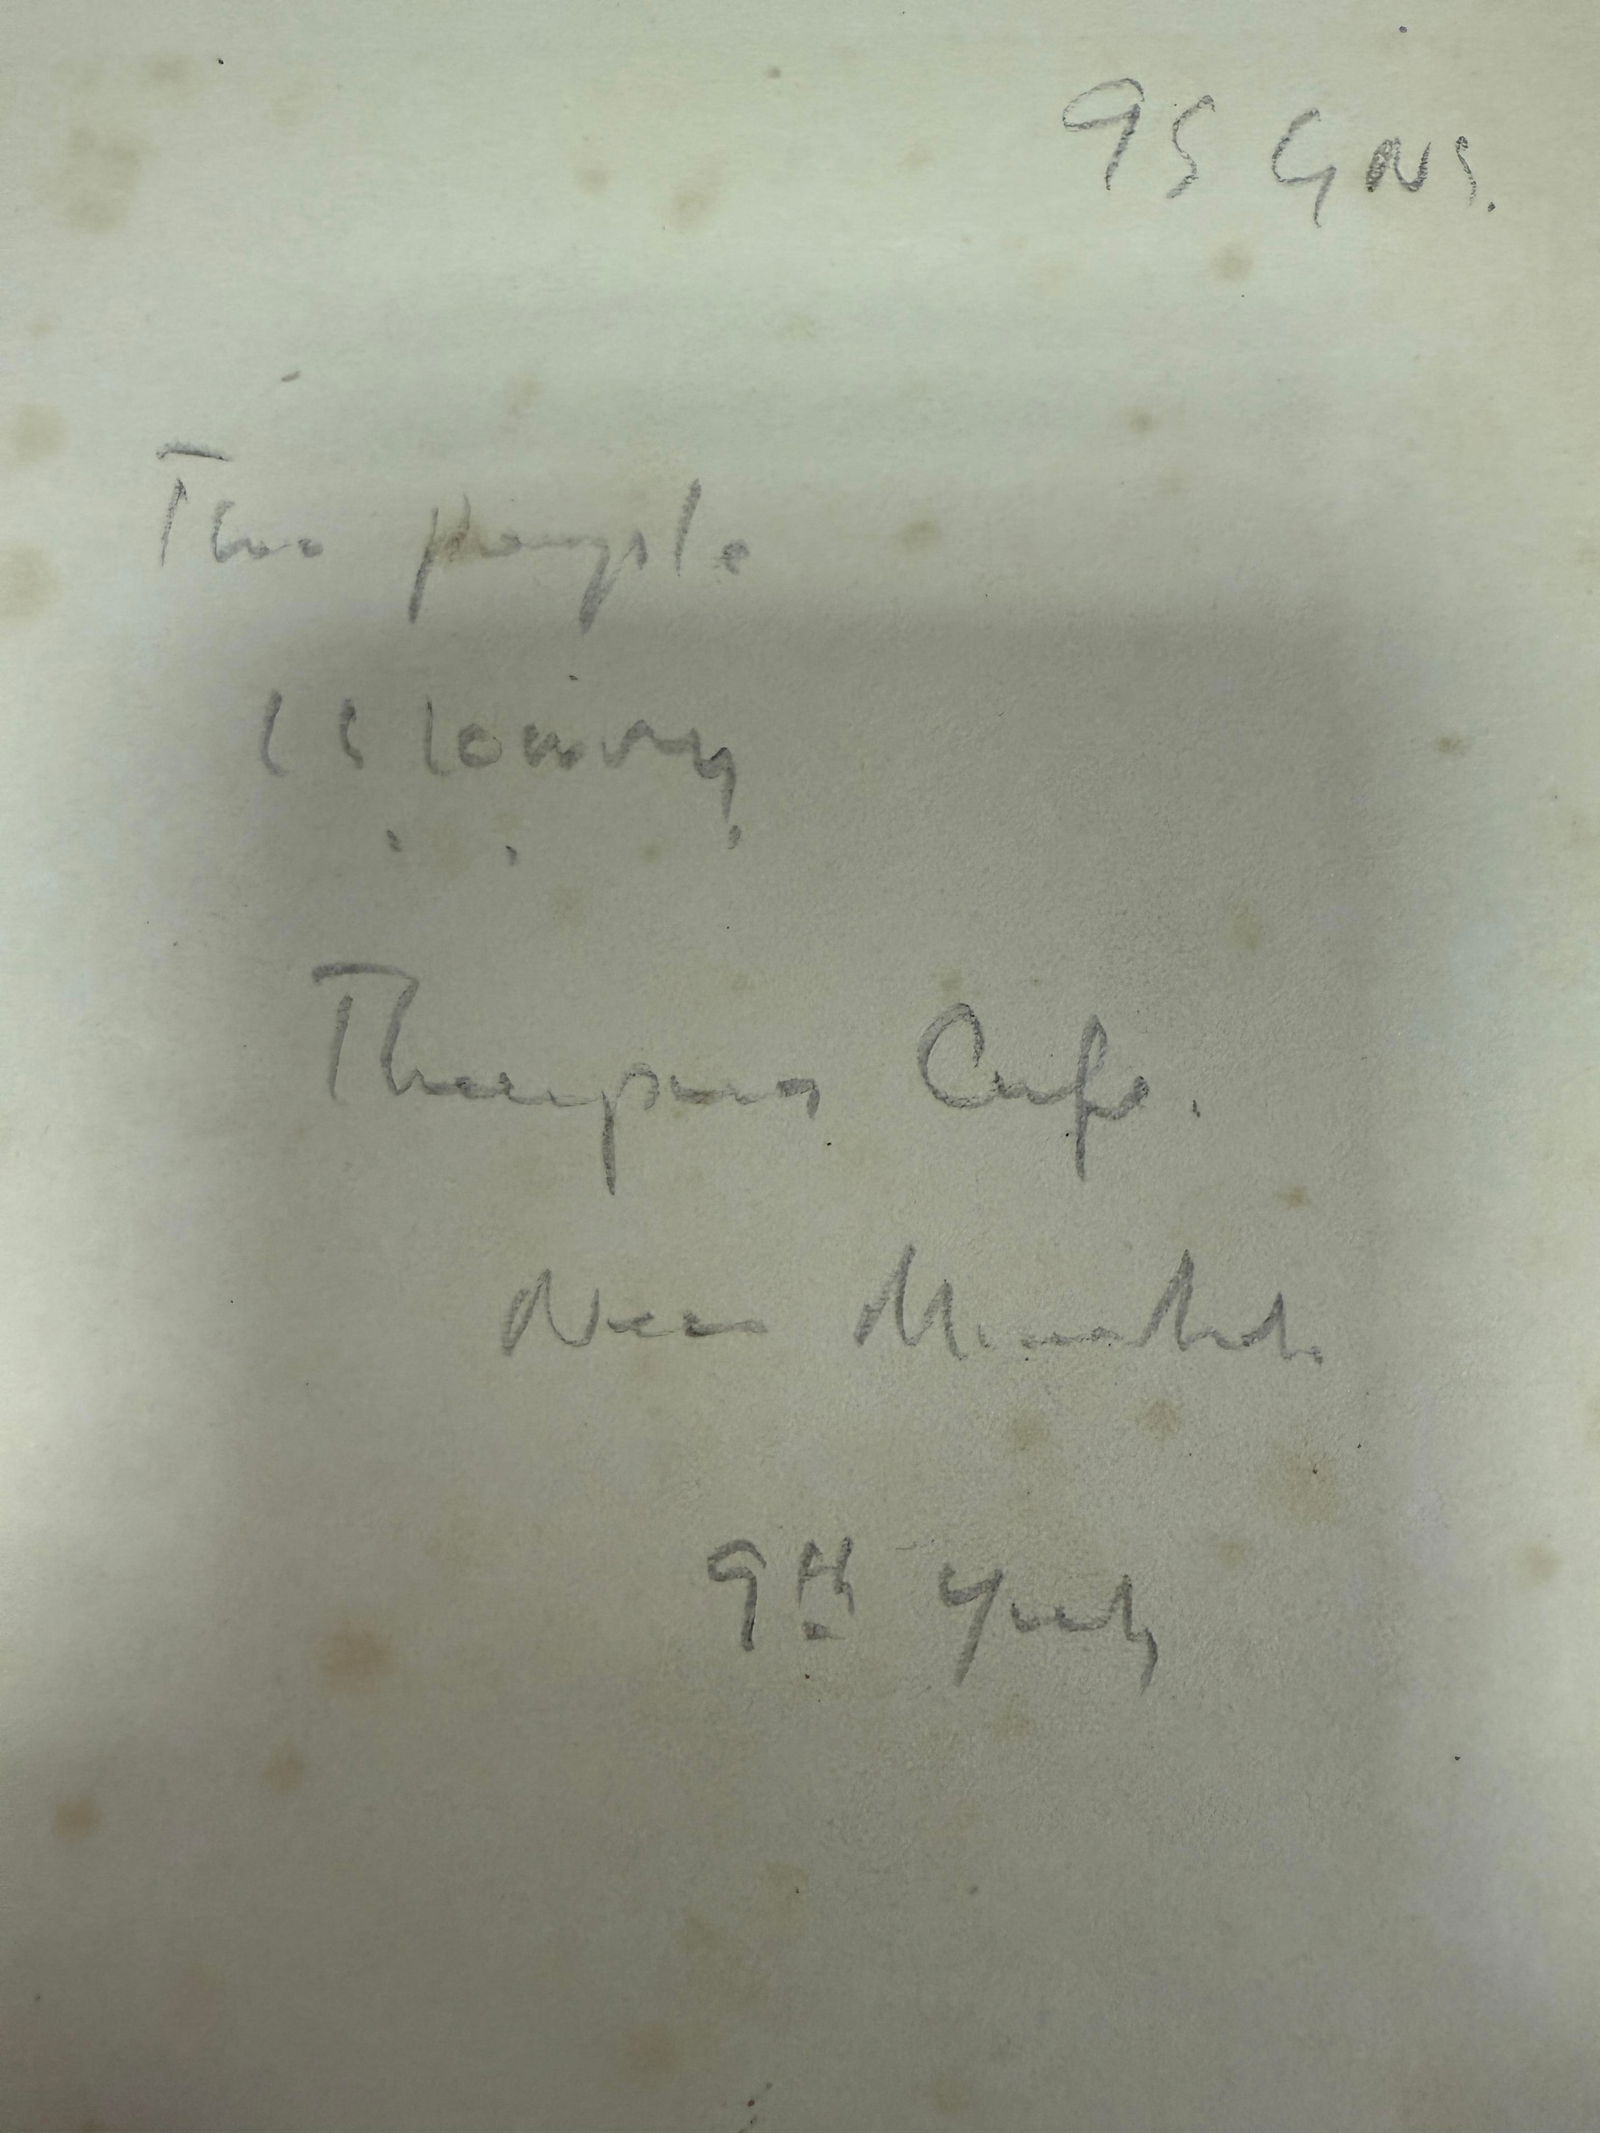 95 GNS.
Two people
LS Lowry
Thompsons Cafe.
Near
9th